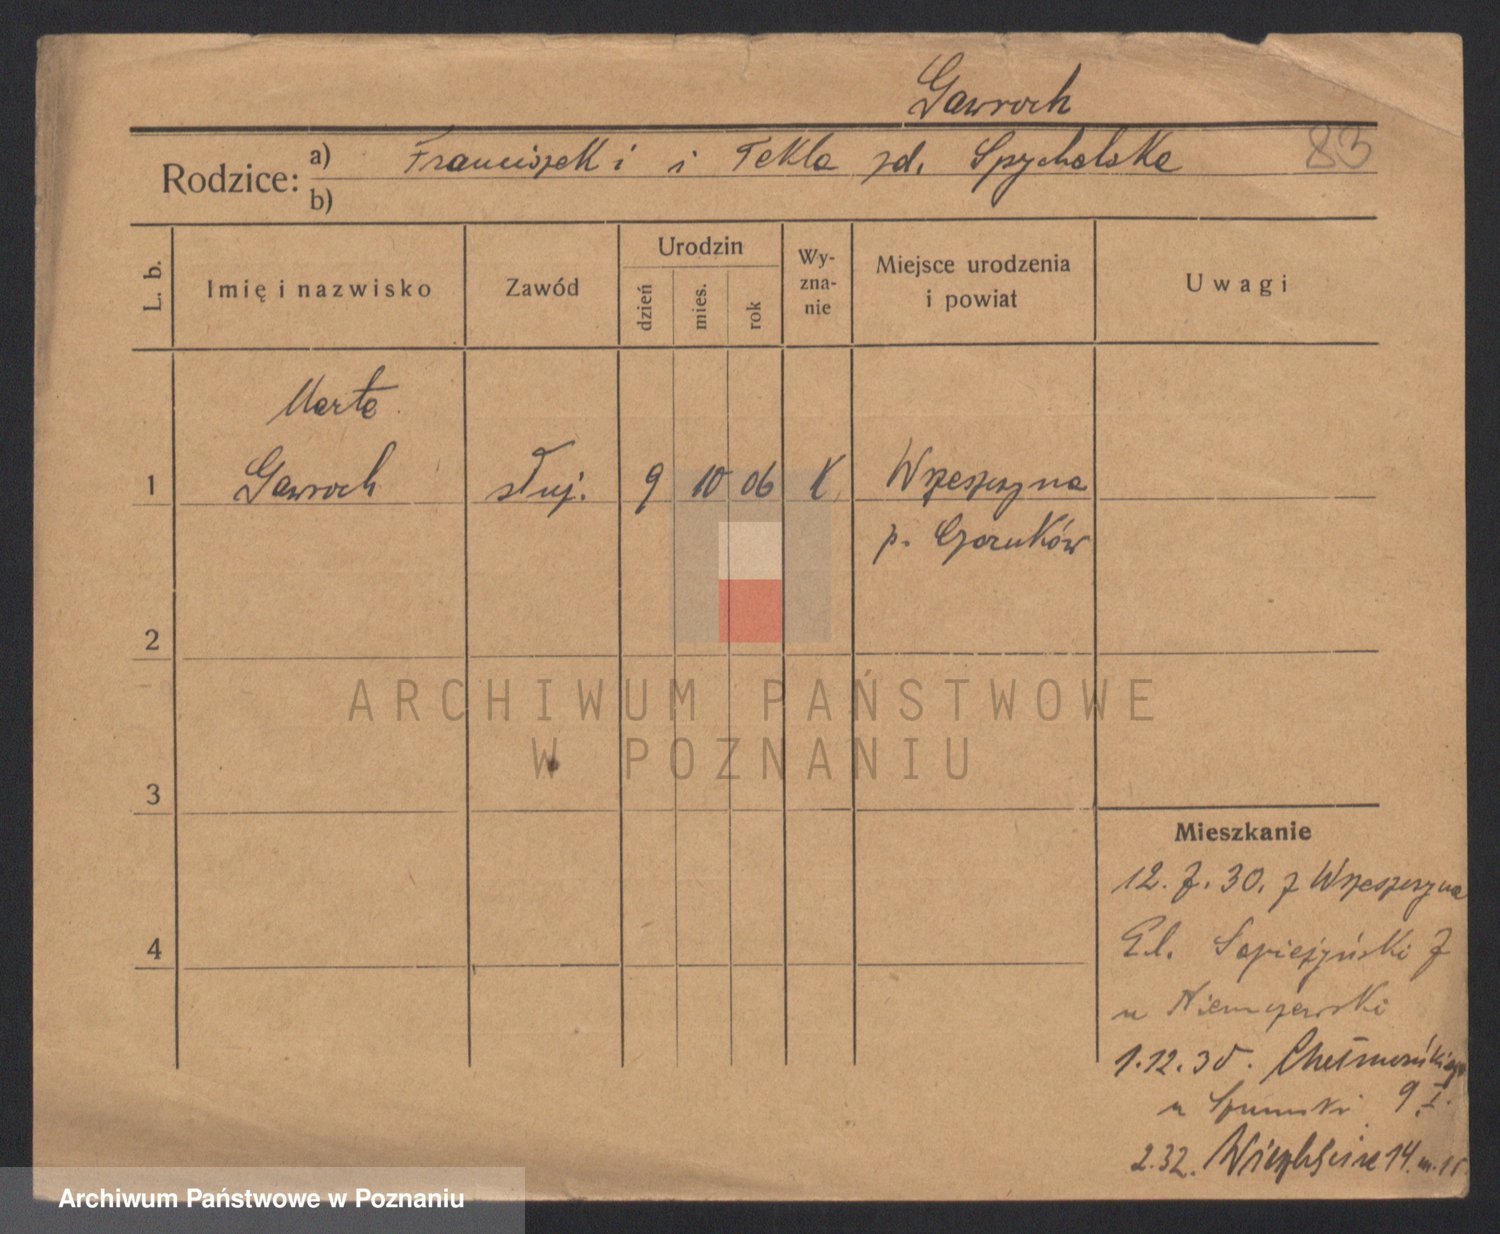 Gawroch
83
Rodzice: a) Franciszek i i Tekla zd. Spychalska
b)
L. b.
Imię i nazwisko
Zawód
Urodzin
dzień
mies.
rok
Wy-
zna-
nie
Miejsce urodzenia
i powiat
Uwagi
Marta
1 Gawroch służ. 9 10 06 K. Wszeszczyna
p. Czarnków
2
3
4
ARCHIWUM PAŃSTWOWE
W POZNANIU
Mieszkanie
12. 7. 30. z
Pl. Sapieżyński 7
u Niemczewski
1.12.30. Chełmońskiego
u 9. I.
2.32. 14
Archiwum Państwowe w Poznaniu